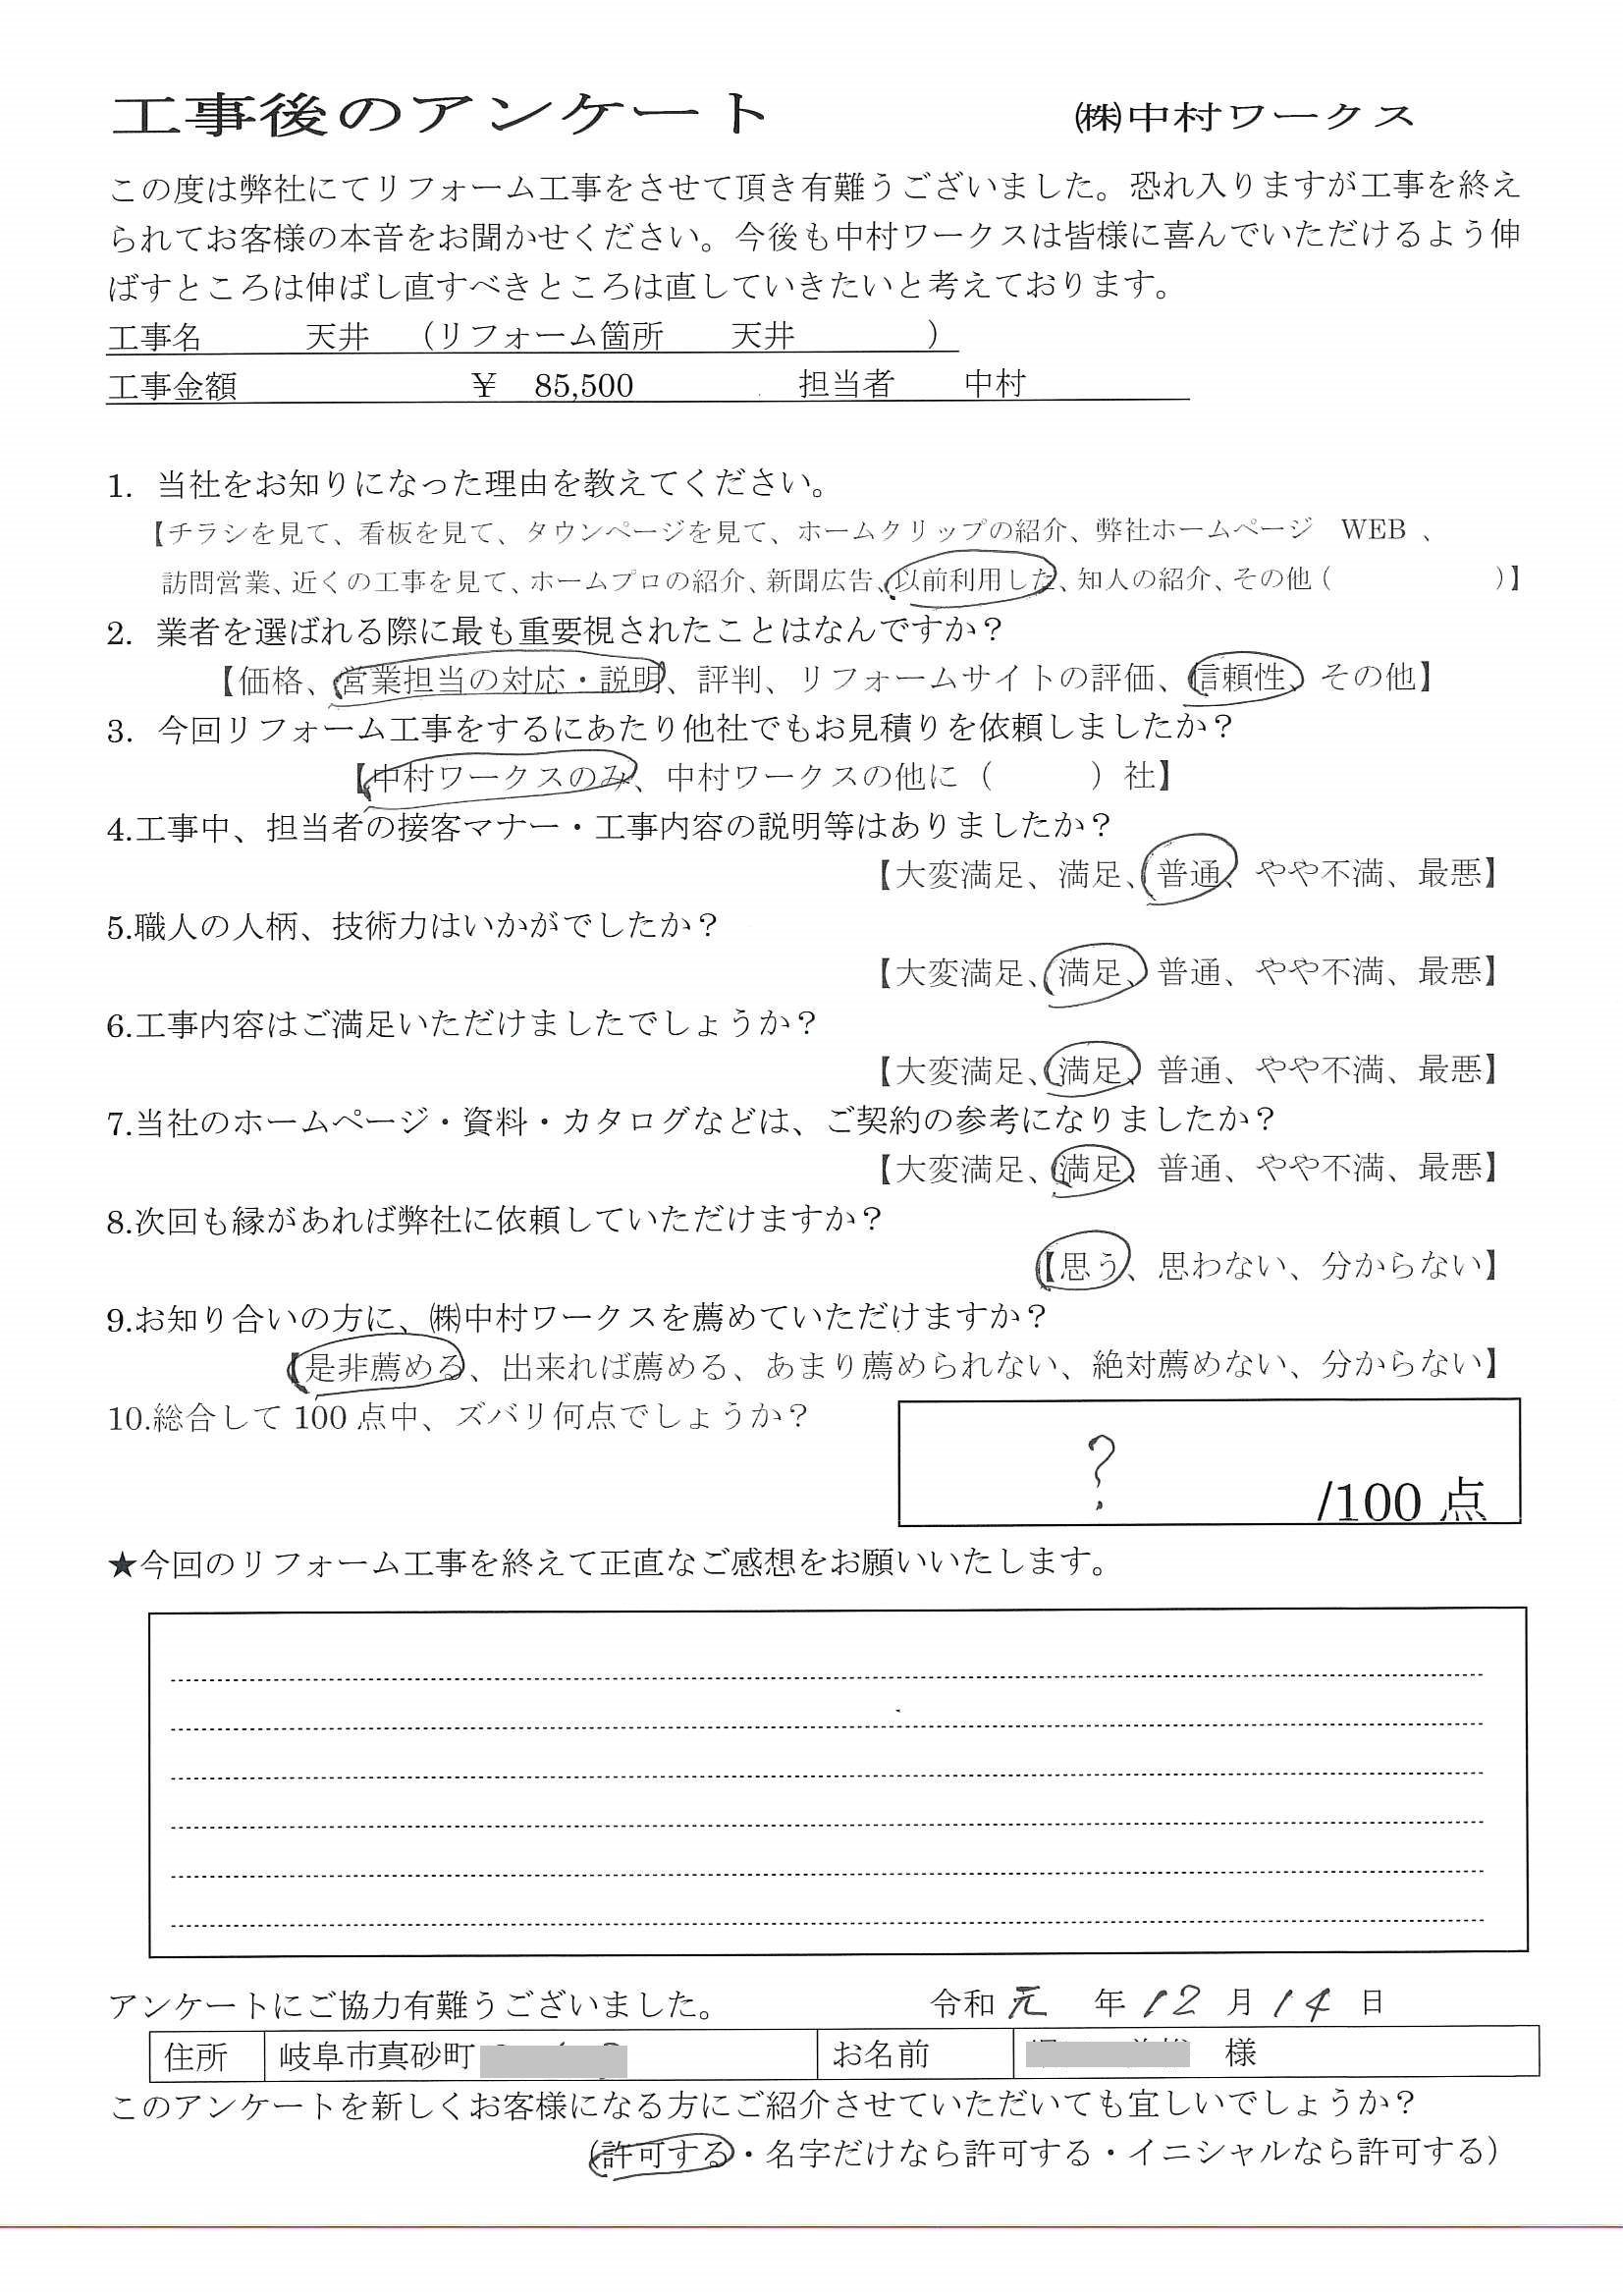 工事後のアンケート ㈱中村ワークス
この度は弊社にてリフォーム工事をさせて頂き有難うございました。恐れ入りますが工事を終え
られてお客様の本音をお聞かせください。今後も中村ワークスは皆様に喜んでいただけるよう伸
ばすところは伸ばし直すべきところは直していきたいと考えております。
工事名 天井 （リフォーム箇所 天井 ）
工事金額 ￥ 85,500 担当者 中村
1. 当社をお知りになった理由を教えてください。
【チラシを見て、看板を見て、タウンページを見て、ホームクリップの紹介、弊社ホームページ WEB 、
訪問営業、近くの工事を見て、ホームプロの紹介、新聞広告、以前利用した、知人の紹介、その他（ ）】
2. 業者を選ばれる際に最も重要視されたことはなんですか？
【価格、営業担当の対応・説明、評判、リフォームサイトの評価、信頼性、その他】
3. 今回リフォーム工事をするにあたり他社でもお見積りを依頼しましたか？
【中村ワークスのみ、中村ワークスの他に（ ）社】
4.工事中、担当者の接客マナー・工事内容の説明等はありましたか？
【大変満足、満足、普通、やや不満、最悪】
5.職人の人柄、技術力はいかがでしたか？
【大変満足、満足、普通、やや不満、最悪】
6.工事内容はご満足いただけましたでしょうか？
【大変満足、満足、普通、やや不満、最悪】
7.当社のホームページ・資料・カタログなどは、ご契約の参考になりましたか？
【大変満足、満足、普通、やや不満、最悪】
8.次回も縁があれば弊社に依頼していただけますか？
【思う、思わない、分からない】
9.お知り合いの方に、㈱中村ワークスを薦めていただけますか？
【是非薦める、出来れば薦める、あまり薦められない、絶対薦めない、分からない】
10.総合して 100 点中、ズバリ何点でしょうか？
? /100 点
★今回のリフォーム工事を終えて正直なご感想をお願いいたします。
アンケートにご協力有難うございました。 令和 元 年 12 月 14 日
住所 岐阜市真砂町 お名前 様
このアンケートを新しくお客様になる方にご紹介させていただいても宜しいでしょうか？
（許可する・名字だけなら許可する・イニシャルなら許可する）